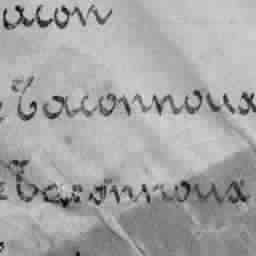 acon
Baconnoux
Baconnoux